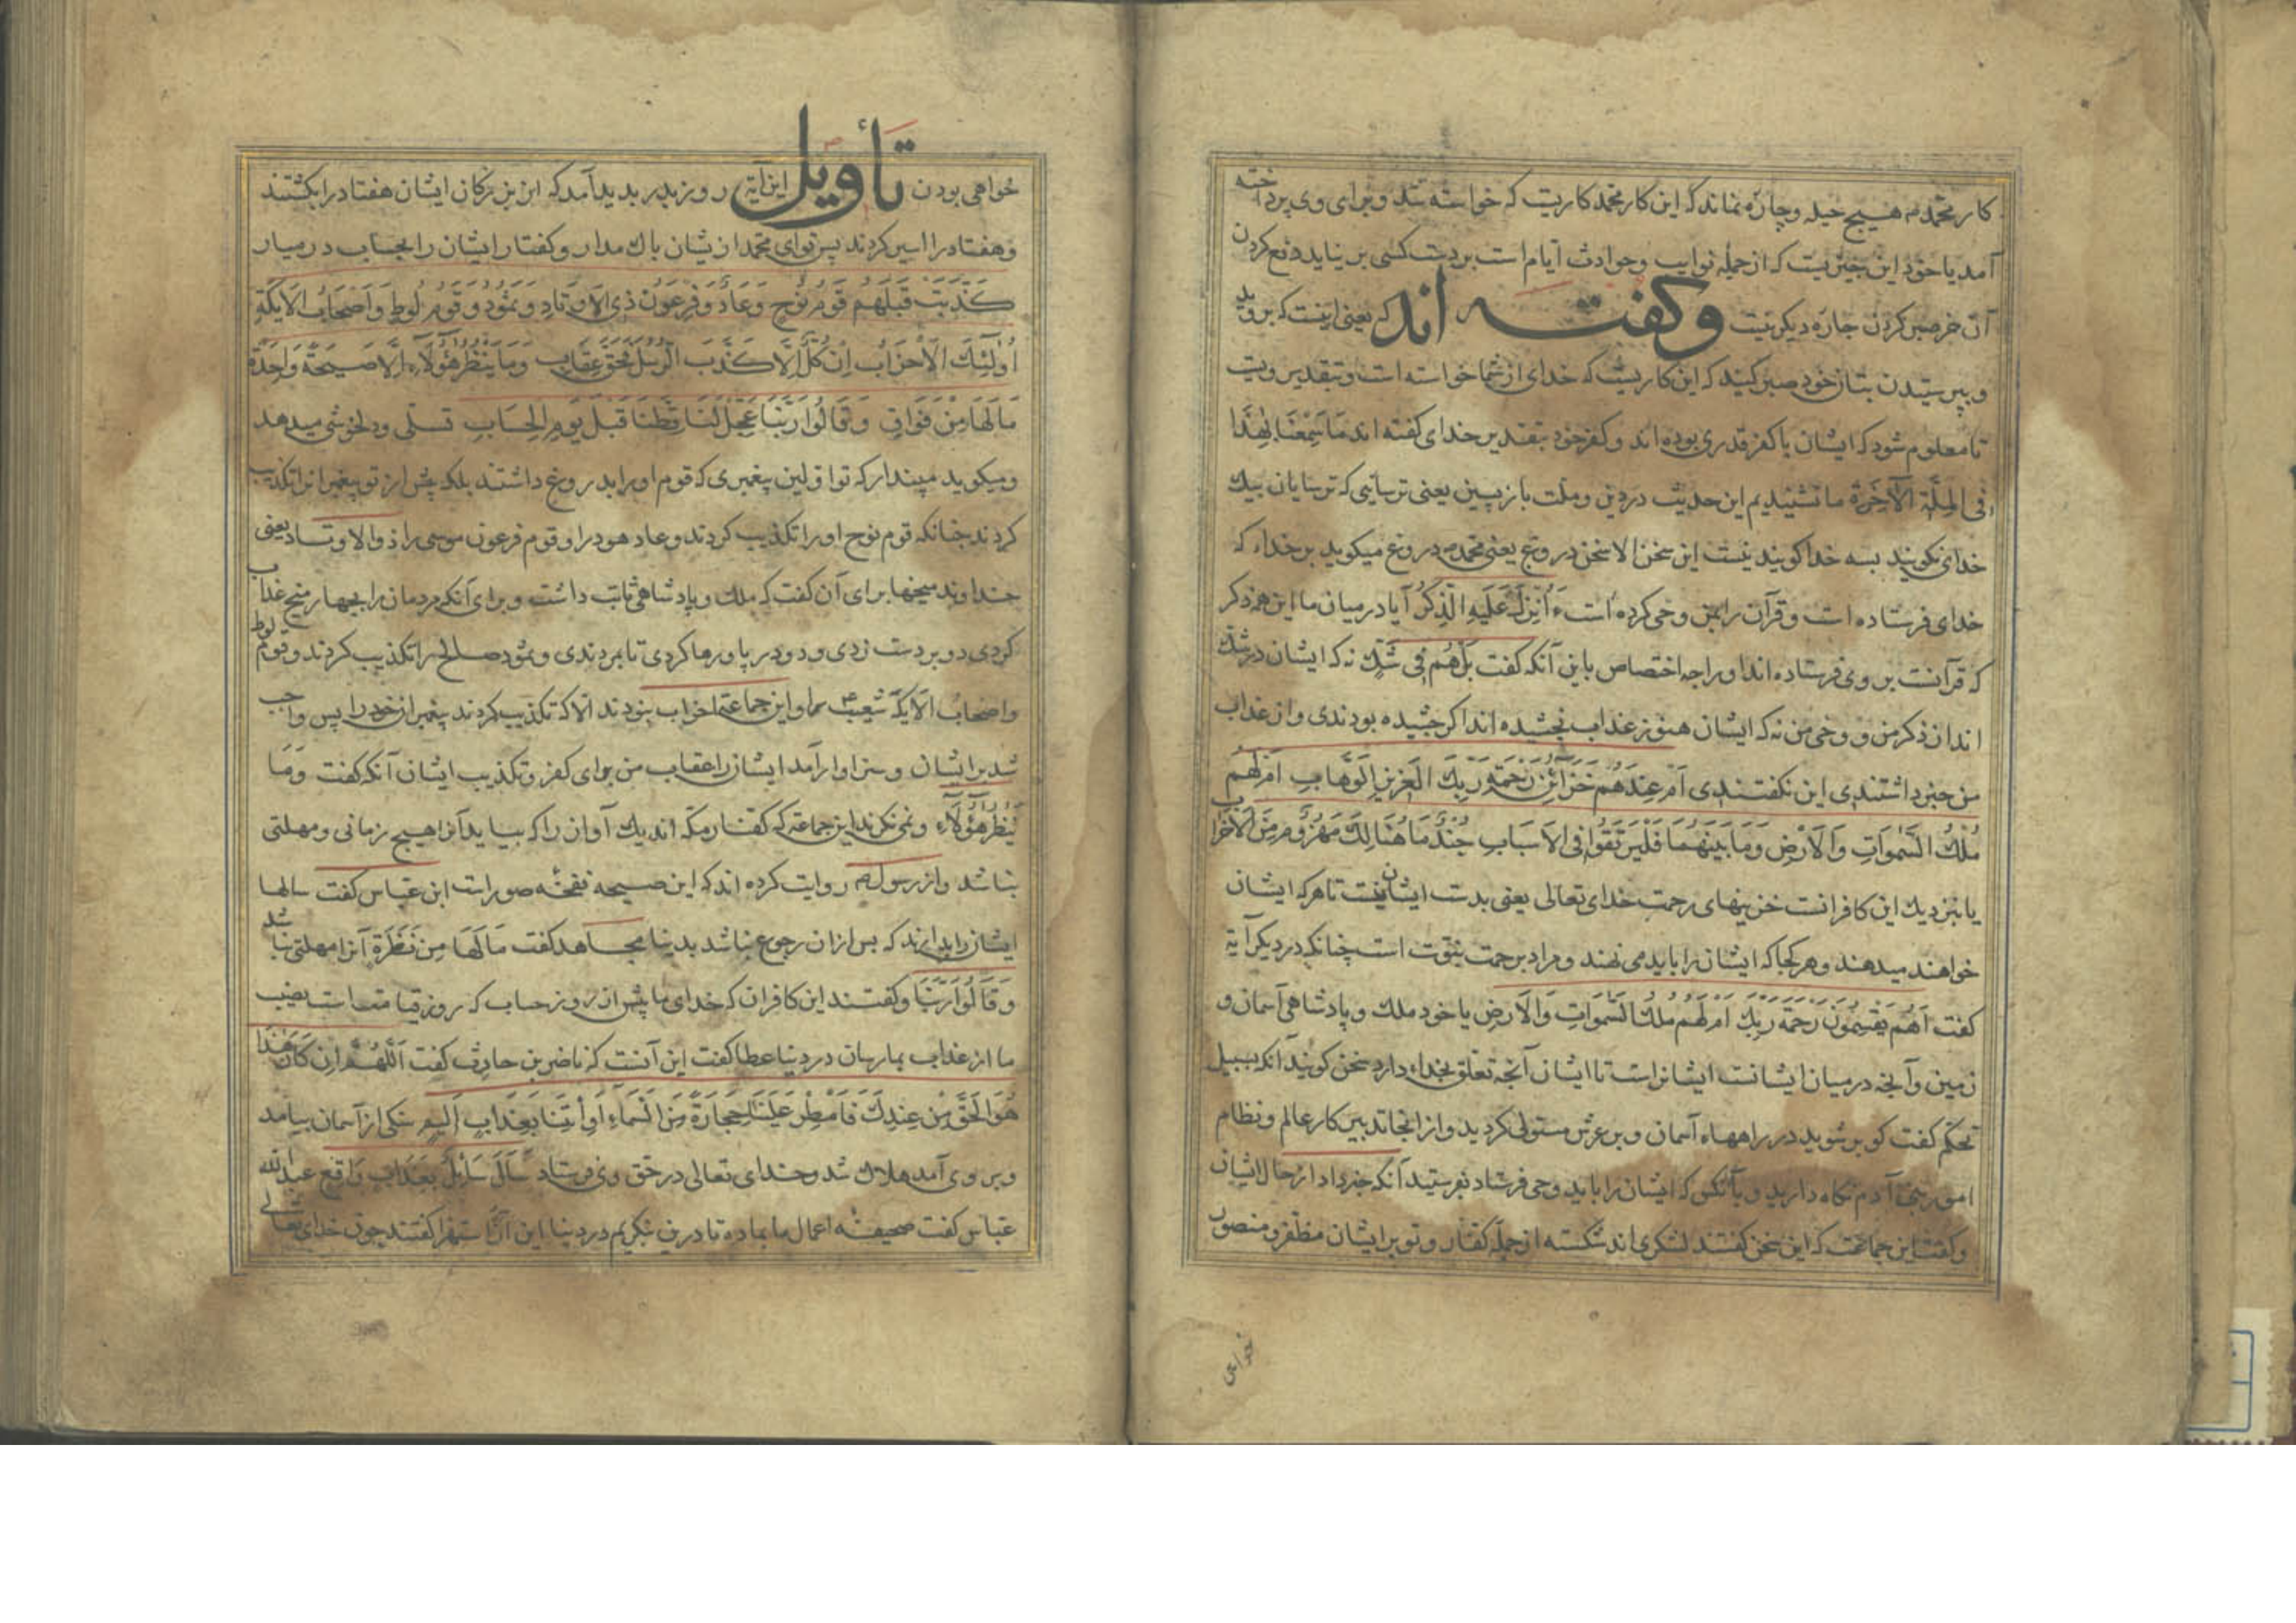 کار محمد م هیچ حیله و چاره نماند که این کار محمد کاریست که خواسته شد و برای وی پرداخته
آمد یا خود این چیزیست که از جمله نوایب و حوادث ایام است بر دست کسی بر نیاید دفع کردن
آن خر صبر کردن چاره دیگر نیست وگفته اند که یعنی اینست که بروید
و بپرستیدن بتان خود صبر کنید که این کاریست که خدای از شما خواسته است و بتقدیر ویست
تا معلوم شود که ایشان با کفر قدری بوده اند و کفر خود بتقدیر خدای گفته اند مَا سَمِعْنَا بِهٰذَا
فِی الْمِلَّةِ الْآخِرَةِ ما نشنیدیم این حدیث در دین و ملت بازپسین یعنی ترسایی که ترسایان بیک
خدای نگویند بسه خدا گویند نیست این سخن الا سخن دروغ یعنی محمد م دروغ میگوید بر خداء که
خدای فرستاده است و قرآن را بمن وحی کرده است ءَأُنْزِلَ عَلَیْهِ الذِّکْرُ آیا در میان ما این همه ذکر
که قرآنست بر وی فرستاده اند او را چه اختصاص باین آنکه گفت بَلْ هُمْ فِی شَکٍّ نه که ایشان در شک
اند از ذکر من و وحی من نه که ایشان هنوز عذاب نچشیده اند اگر چشیده بودندی و از عذاب
من خبر داشتندی این نگفتندی اَمْ عِنْدَهُمْ خَزَآئِنُ رَحْمَةِ رَبِّکَ الْعَزِیزِ الْوَهَّابِ اَمْ لَهُمْ
مُلْکُ السَّمٰوَاتِ وَالْاَرْضِ وَمَا بَیْنَهُمَا فَلْیَرْتَقُوا فِی الْاَسْبَابِ جُنْدٌ مَا هُنَالِکَ مَهْزُومٌ مِنَ الْاَحْزَابِ
یا بنزدیک این کافرانست خزینهای رحمت خدای تعالی یعنی بدست ایشان نیست تا هر که ایشان
خواهند میدهند و هر کجا که ایشان را باید می نهند و مراد برحمت نبوت است چنانکه در دیگر آیة
گفت اَهُمْ یَقْسِمُونَ رَحْمَةَ رَبِّکَ اَمْ لَهُمْ مُلْکُ السَّمٰوَاتِ وَالْاَرْضِ یا خود ملک و پادشاهی آسمان و
زمین و آنچه در میان ایشانست ایشانراست تا ایشان آنچه تعلق بخداء دارد سخن گویند آنکه بسبیل
تحکم گفت کو بر شوید در راههاء آسمان و بر عرش مستولی گردید و از آنجا تدبیر کار عالم و نظام
امور بنی آدم نگاه دارید و بآنکس که ایشان را باید وحی فرستاد بفرستید آنکه خبر داد از حال ایشان
و گفت این جماعت که این سخن گفتند لشکری اند شکسته از جمله کفار و تو بر ایشان مظفر و منصور
خواهی
خواهی بودن تأویل این آیة روز بدر بدید آمد که از بزرگان ایشان هفتاد را بکشتند
و هفتاد را اسیر کردند پس تو ای محمد از یشان باک مدار و گفتار ایشان را بحساب در میار
کَذَّبَتْ قَبْلَهُمْ قَوْمُ نُوحٍ وَعَادٌ وَفِرْعَوْنُ ذِی الْاَوْتَادِ وَثَمُودُ وَقَوْمُ لُوطٍ وَاَصْحَابُ الْاَیْکَةِ
اُولٰٓئِکَ الْاَحْزَابُ اِنْ کُلٌّ اِلَّا کَذَّبَ الرُّسُلَ فَحَقَّ عِقَابِ وَمَا یَنْظُرُ هٰٓؤُلَآءِ اِلَّا صَیْحَةً وَاحِدَةً
مَا لَهَا مِنْ فَوَاقٍ وَقَالُوا رَبَّنَا عَجِّلْ لَنَا قِطَّنَا قَبْلَ یَوْمِ الْحِسَابِ تسلی و دلخوشی میدهد
و میگوید مپندار که تو اولین پیغمبری که قوم او را بدروغ داشتند بلکه پیش از تو پیغمبرانرا تکذیب
کردند چنانکه قوم نوح او را تکذیب کردند و عاد هود را و قوم فرعون موسی را ذوالاوتاد یعنی
خداوند میخها برای آن گفت که ملک و پادشاهی ثابت داشت و برای آنکه مردمان را بچهار میخ عذاب
کردی دو بر دست زدی و دو در پا و رها کردی تا بمردندی و ثمود صالح را تکذیب کردند و قوم لوط
واصحابُ الْاَیْکَة شعیب را و این جماعة احزاب نبودند الا که تکذیب کردند پیغمبران خود را پس واجب
شد بر ایشان و سزاوار آمد ایشان را عقاب من برای کفر و تکذیب ایشان آنکه گفت وَمَا
یَنْظُرُ هٰٓؤُلَآءِ و نمی نگرند این جماعة که کفار مکه اند الا یک آواز را که بیاید آنرا هیچ زمانی و مهلتی
نباشد و از رسول م روایت کرده اند که این صیحه نفخهٔ صور است ابن عباس گفت سالها
ایشان را بدارند که پس از آن رجوع نباشد بدنیا مجاهد گفت مَا لَهَا مِنْ نَظْرَةٍ آنرا مهلتی نباشد
وَقَالُوا رَبَّنَا و گفتند این کافران که خدای ما پیش از روز حساب که روز قیامت است نصیب
ما از عذاب بما رسان در دنیا عطا گفت این آنست که ناضر بن حارث گفت اَللّٰهُمَّ اِنْ کَانَ هٰذَا
هُوَ الْحَقَّ مِنْ عِنْدِکَ فَاَمْطِرْ عَلَیْنَا حِجَارَةً مِنَ السَّمَآءِ اَوِ ائْتِنَا بِعَذَابٍ اَلِیمٍ سنکی از آسمان بیامد
و بر وی آمد هلاک شد و خدای تعالی در حق وی فرستاد سَاَلَ سَآئِلٌ بِعَذَابٍ وَاقِعٍ عبدالله
عباس گفت صحیفهٔ اعمال ما بما ده تا درین نگریم در دنیا این آن استهزا گفتند چون خدای تعالی